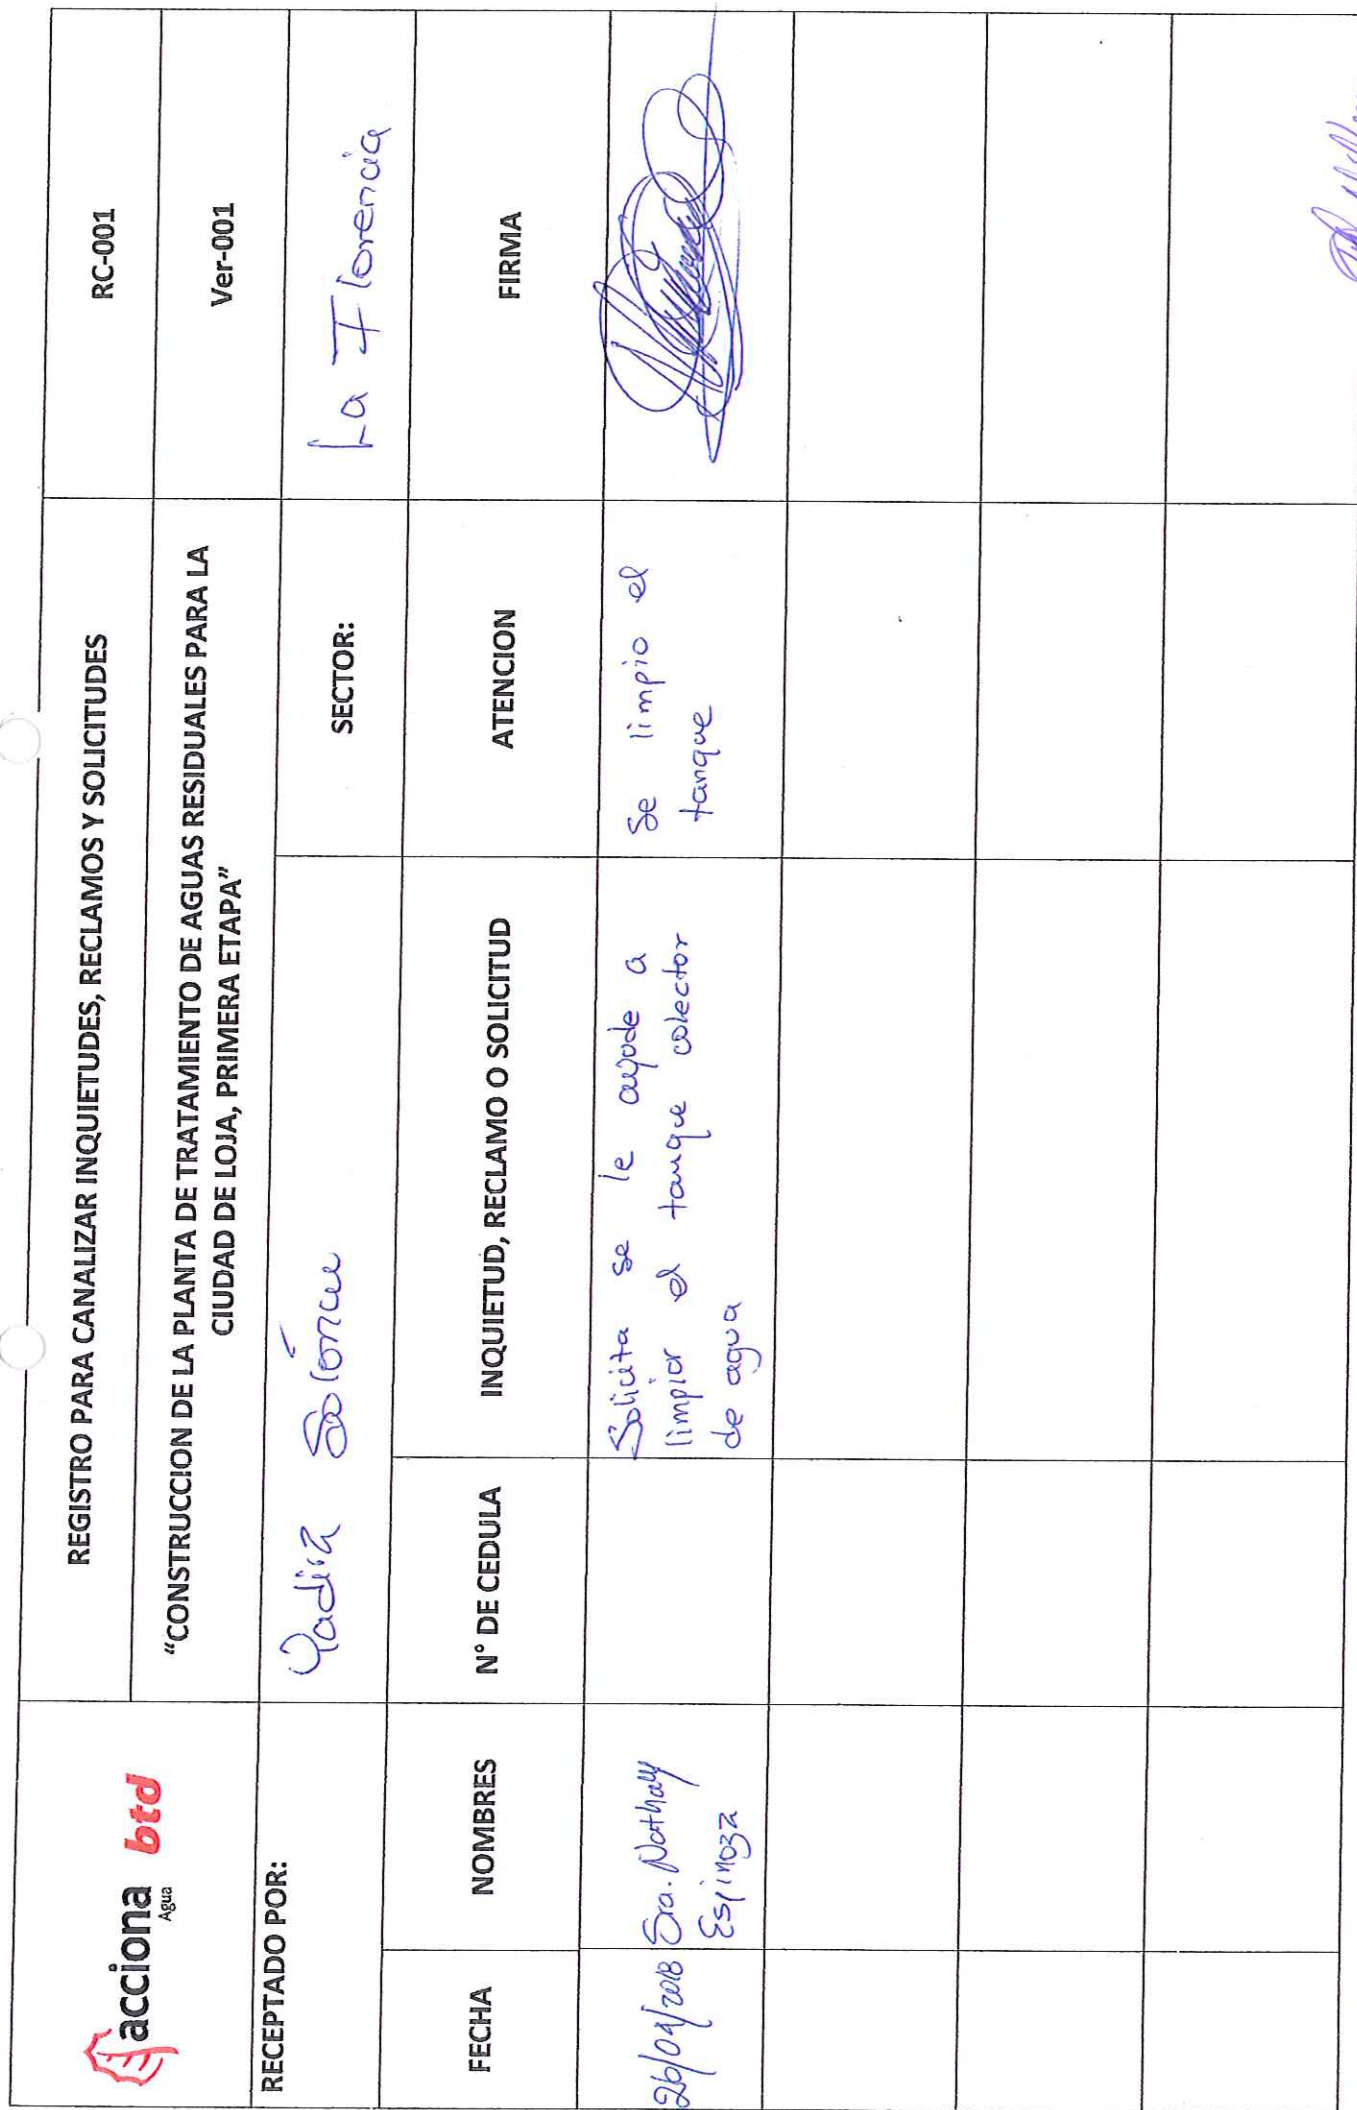 acciona
Agua
btd
REGISTRO PARA CANALIZAR INQUIETUDES, RECLAMOS Y SOLICITUDES
RC-001
"CONSTRUCCION DE LA PLANTA DE TRATAMIENTO DE AGUAS RESIDUALES PARA LA
CIUDAD DE LOJA, PRIMERA ETAPA"
Ver-001
RECEPTADO POR:
SECTOR:
La Florencia
FECHA
NOMBRES
N° DE CEDULA
INQUIETUD, RECLAMO O SOLICITUD
ATENCION
FIRMA
Sra. Nathaly
Espinoza
Solicita se le ayude a
limpiar el tanque colector
de agua
Se limpio el
tanque